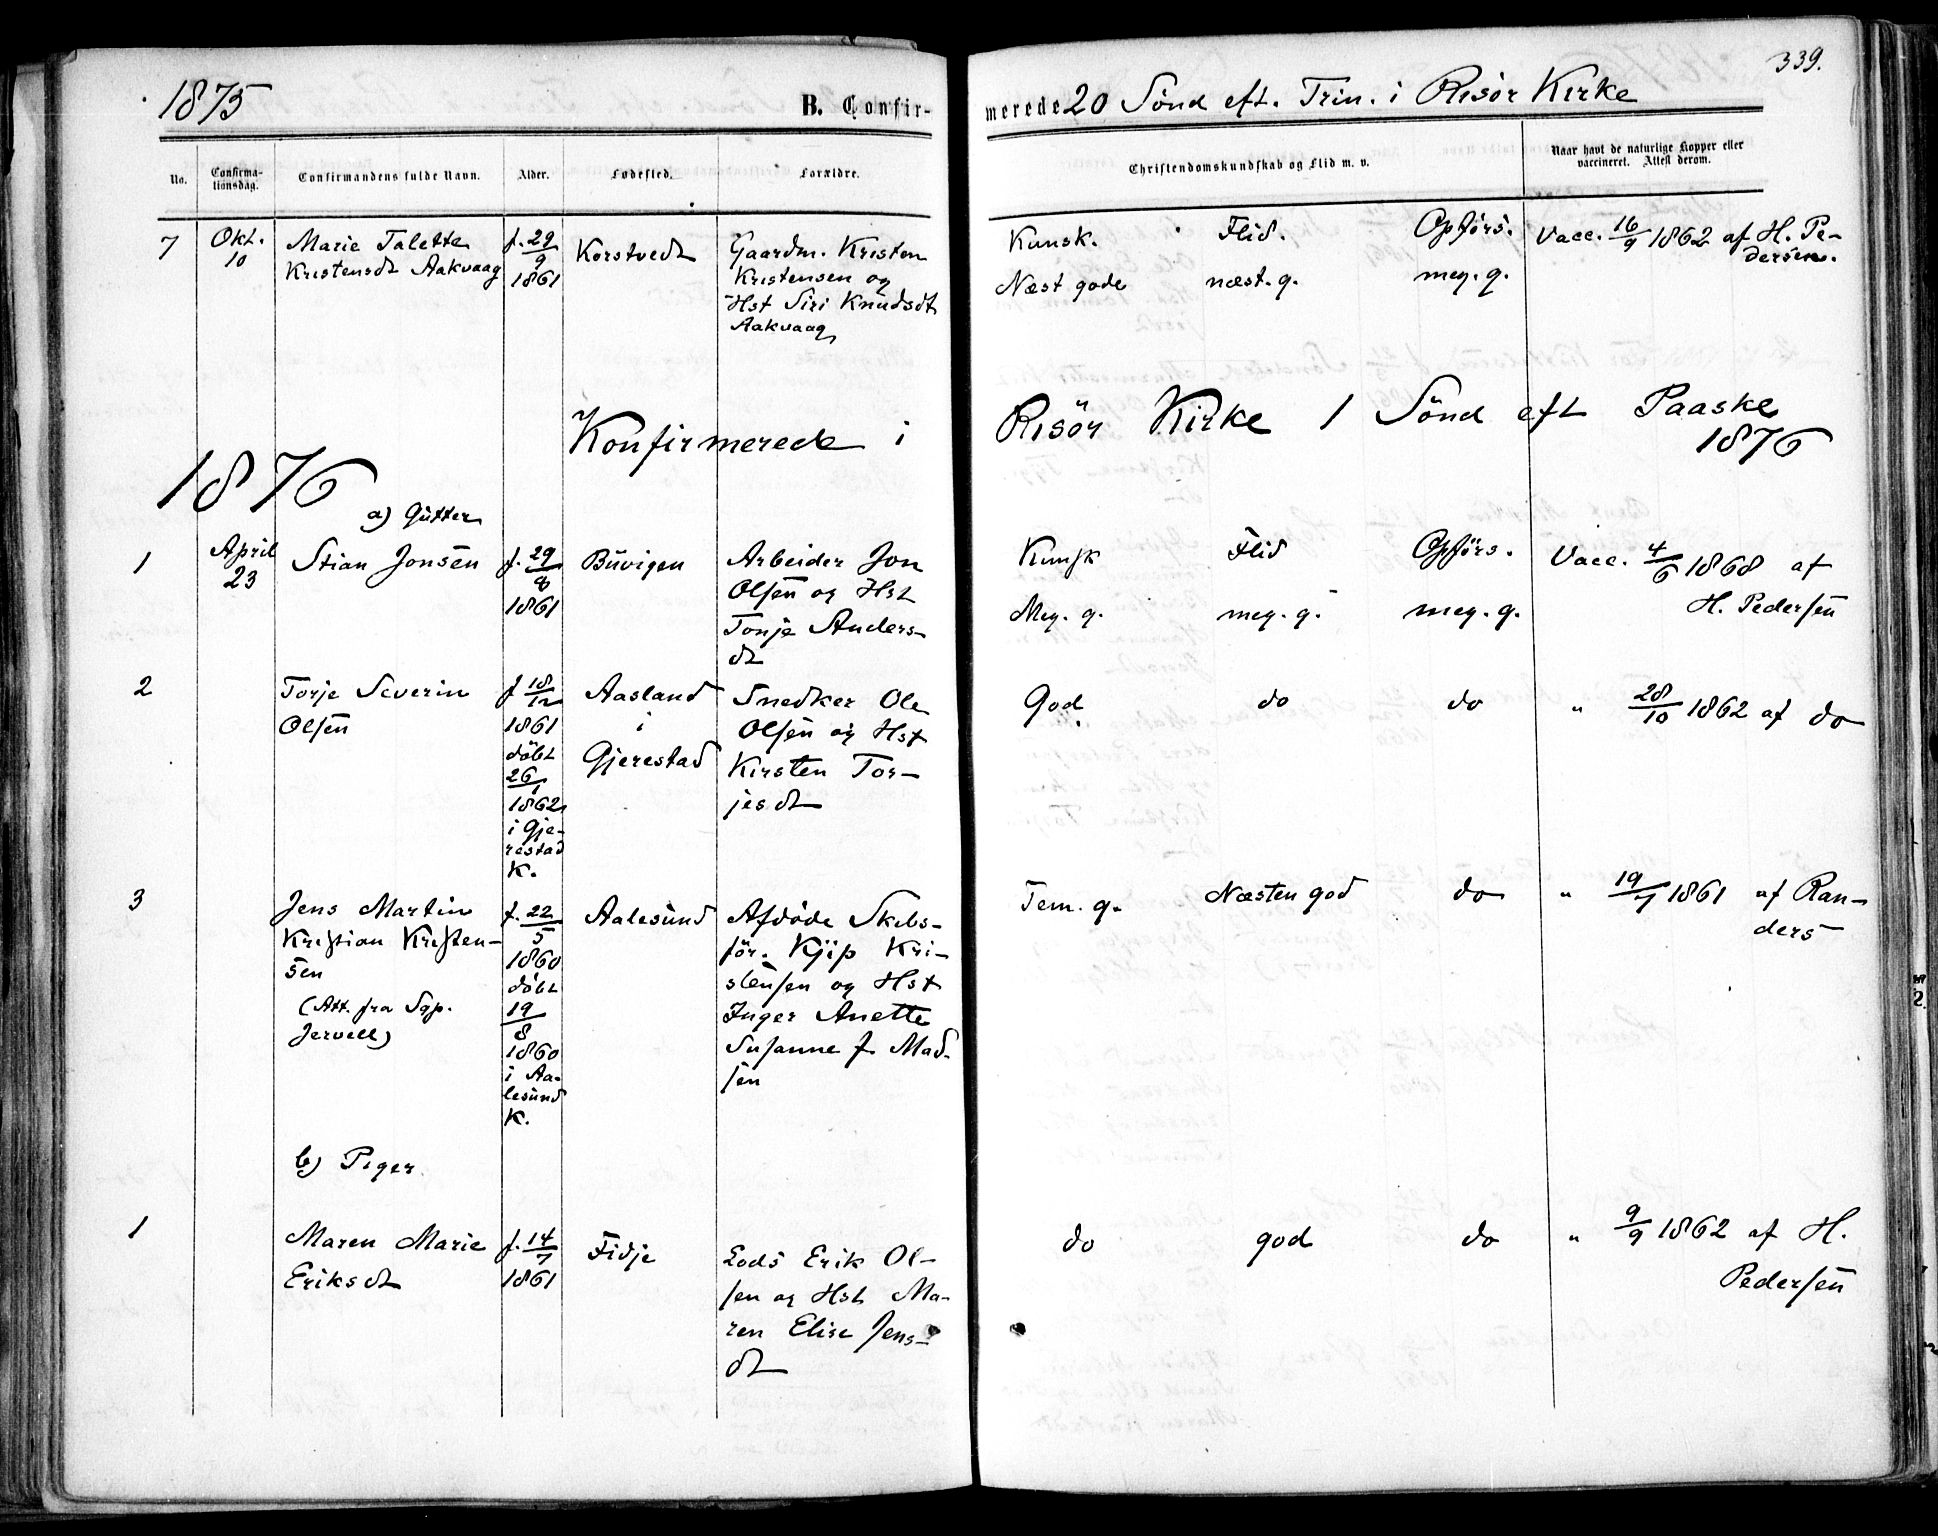 339.
1875 B. Confir-merede 20 Sönd eft. Trin. i Risör Kirke
No. Confirma-tionsdag. Confirmandens fulde Navn. Alder. Fødested. Forældre. Christendomskundskab og Flid m. v. Naar havt de naturlige Kopper eller vaccineret. Attest derom.
7 Okt. 10
Marie Talette
Kristensdt Aakvaag
f. 29/9
1861
Korstvedt
Gaardm. Kristen
Kristensen og
Hst Siri Knudsdt
Aakvaag
Kunsk. Flid. Opförs.
Næst gode næst. g. meg. g.
Vacc. 16/9 1862 af H. Pe-
dersen.
Konfirmerede i Risör Kirke 1 Sönd eft Paaske
1876
1876
a) Gütter
1 April 23
Stian Jonsen
f. 29/8
1861
Büvigen
Arbeider Jon
Olsen og Hst
Tonje Anders-
dt
Kunsk Flid Opförs.
Meg. g. meg. g. meg. g.
Vacc. 4/6 1868 af
H. Pedersen
2
Torje Severin
Olsen
f 18/12
1861
döbt
26/1
1862
i Gje-
restad
K.
Aasland
i
Gjerestad
Snedker Ole
Olsen og Hst
Kirsten Tor-
jesdt
God do do " 28/10 1862 af do
3
Jens Martin
Kristian Kristen-
sen
(Att. fra Sgp.
Jervell)
f. 22/5
1860
döbt
19/8
1860
i Aa-
lesünd
K.
Aalesünd
Afdöde Skibs-
för. Kjip Kri-
stensen og Hst
Inger Anette
Susanne f. Mad-
sen
Tem. g. Næsten god do " 19/7 1861 af Ran-
ders
b) Piger
1
Maren Marie
Eriksdt
f. 14/7
1861
Fidje
Lods Erik Ol-
sen og Hst Ma-
ren Elise Jens-
dt
do god do " 9/9 1862 af H.
Pedersen